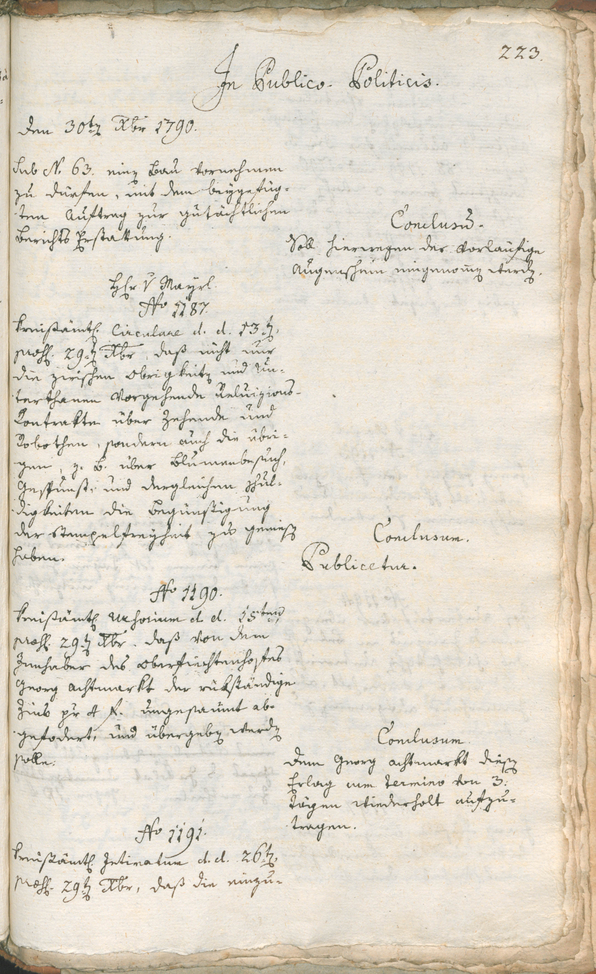 223.
In Publico-Politicis.
den 30tn Xbr 1790.
sub No. 63. einen Bau vornehmen
zu dürfen, mit dem beygefüg-
ten Auftrag zur gutächtlichen
Berichts Erstattung.
Conclusū.
Soll hierwegen der vorläufige
Augenschein eingenomen werden.
Hr v Mayrl.
No 1187.
Kreisämtl. Circulare d. d. 13tn,
præs. 29tn Xbr, daß nicht nur
die zwischen Obrigkeiten und Un-
terthanen vorgehende Reluizions-
Contrakte über Zehende und
Robothen, sondern auch die übri-
gen, z. B. über Blumenbesuch,
Gespunst- und dergleichen Schul-
digkeiten die Begünstigung
der Stempelfreyheit zu geniessen
haben.
Conclusum.
Publicetur.
No 1190.
Kreisämtl. d. d. 15ten,
præs. 29tn Xbr. daß von dem
Innhaber des Oberfeichtenhofes
Georg Achtmarkt der rükständige
Zins pr 4 f. ungesäumt ab-
gefodert, und übergeben werden
solle.
Conclusum.
Dem Georg Achtmarkt diesen
Erlag cum Termino von 3.
Tägen wiederholt aufzu-
tragen.
No 1191.
Kreisämtl. Intimatum d. d. 26tn,
præs. 29tn Xbr, daß die einzu-